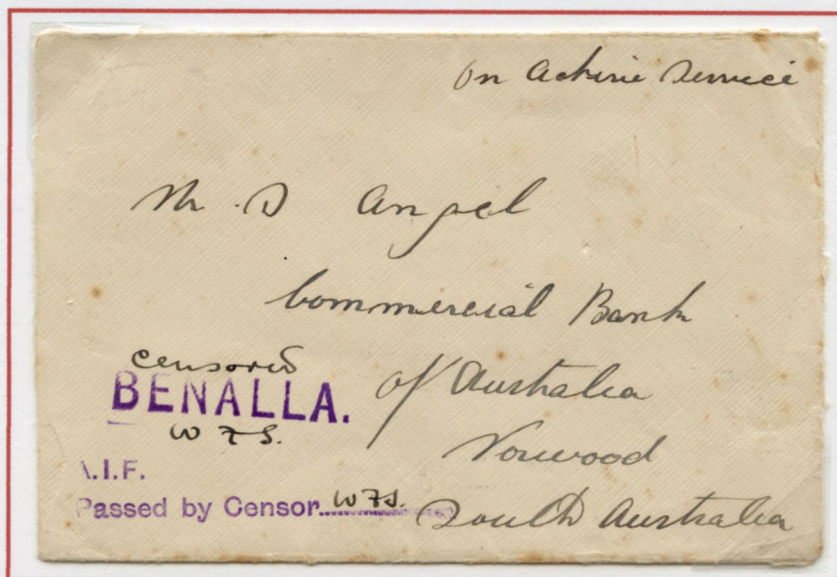 On Active Service
Mr. D Angel
Commercial Bank
of Australia
Norwood
South Australia
censored
BENALLA.
W F S.
A.I.F.
Passed by Censor W F S.